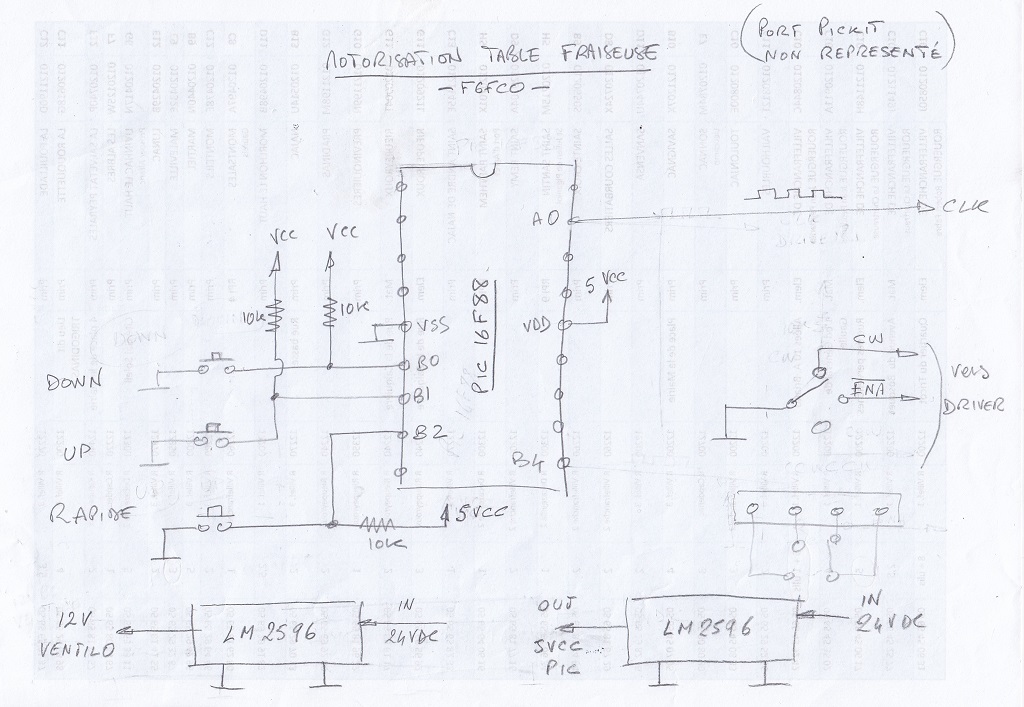 MOTORISATION TABLE FRAISEUSE
— F6FCO —
(PORT PICKIT
NON REPRESENTÉ)
A0
CLK
VCC
VCC
10K
10K
PIC 16F88
5VCC
VSS
VDD
B0
B1
B2
B4
DOWN
UP
RAPIDE
5VCC
10K
CW
ENA
VERS
DRIVER
12V
VENTILO
LM2596
IN
24VDC
OUT
5VCC
PIC
LM2596
IN
24VDC